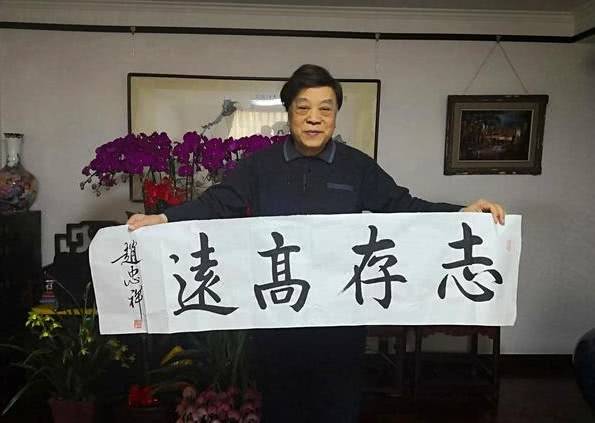 志存高遠
趙忠祥